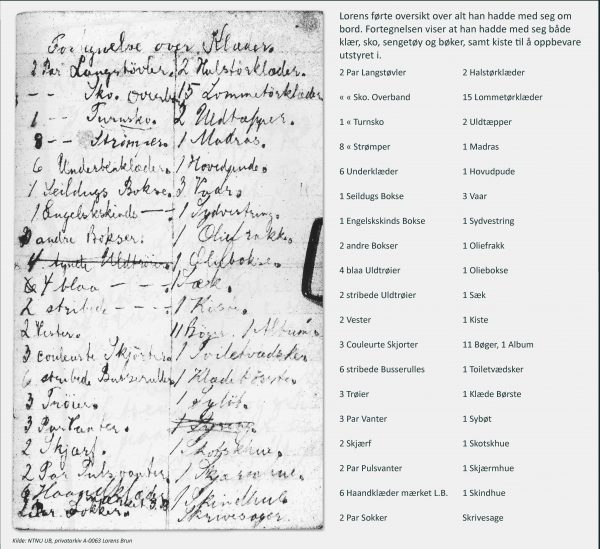 Fortegnelse over Klæder.
2 Par Langstøvler. 2 Halstørklæder.
" - Sko. Overb 15 Lommetørklæder
1 - Turnsko. 2 Uldtæpper.
8 - Strømper 1 Madras.
6 Underklæder. 1 Hovedpude.
1 Seildugs Bokse. 3 Vaar.
1 Engelskskinds - 1 Sydvestring.
andre Bokser. 1 Oliefrakk.
1 Oliebokse.
4 blaa - 1 Sæk.
2 stribede - 1 Kiste.
2 Vester. 11 Bøger. 1 Album.
3 couleurte Skjorter. 1 Toiletvædsker
6 stribede Busserulles 1 Klædebørste.
3 Trøier. 1 Sybøt.
3 Par Vanter.
2 Skjærf. 1 Skotskhue.
2 Par Pulsvanter. 1 Skjærmhue.
Haandklæder 1 Skindhue
Par Sokker. Skrivesager.
Kilde: NTNU UB, privatarkiv A-0063 Lorens Brun
Lorens førte oversikt over alt han hadde med seg om
bord. Fortegnelsen viser at han hadde med seg både
klær, sko, sengetøy og bøker, samt kiste til å oppbevare
utstyret i.
2 Par Langstøvler 2 Halstørklæder
« « Sko. Overband 15 Lommetørklæder
1 « Turnsko 2 Uldtæpper
8 « Strømper 1 Madras
6 Underklæder 1 Hovudpude
1 Seildugs Bokse 3 Vaar
1 Engelskskinds Bokse 1 Sydvestring
2 andre Bokser 1 Oliefrakk
4 blaa Uldtrøier 1 Oliebokse
2 stribede Uldtrøier 1 Sæk
2 Vester 1 Kiste
3 Couleurte Skjorter 11 Bøger, 1 Album
6 stribede Busserulles 1 Toiletvædsker
3 Trøier 1 Klæde Børste
3 Par Vanter 1 Sybøt
2 Skjærf 1 Skotskhue
2 Par Pulsvanter 1 Skjærmhue
6 Haandklæder mærket L.B. 1 Skindhue
2 Par Sokker Skrivesage